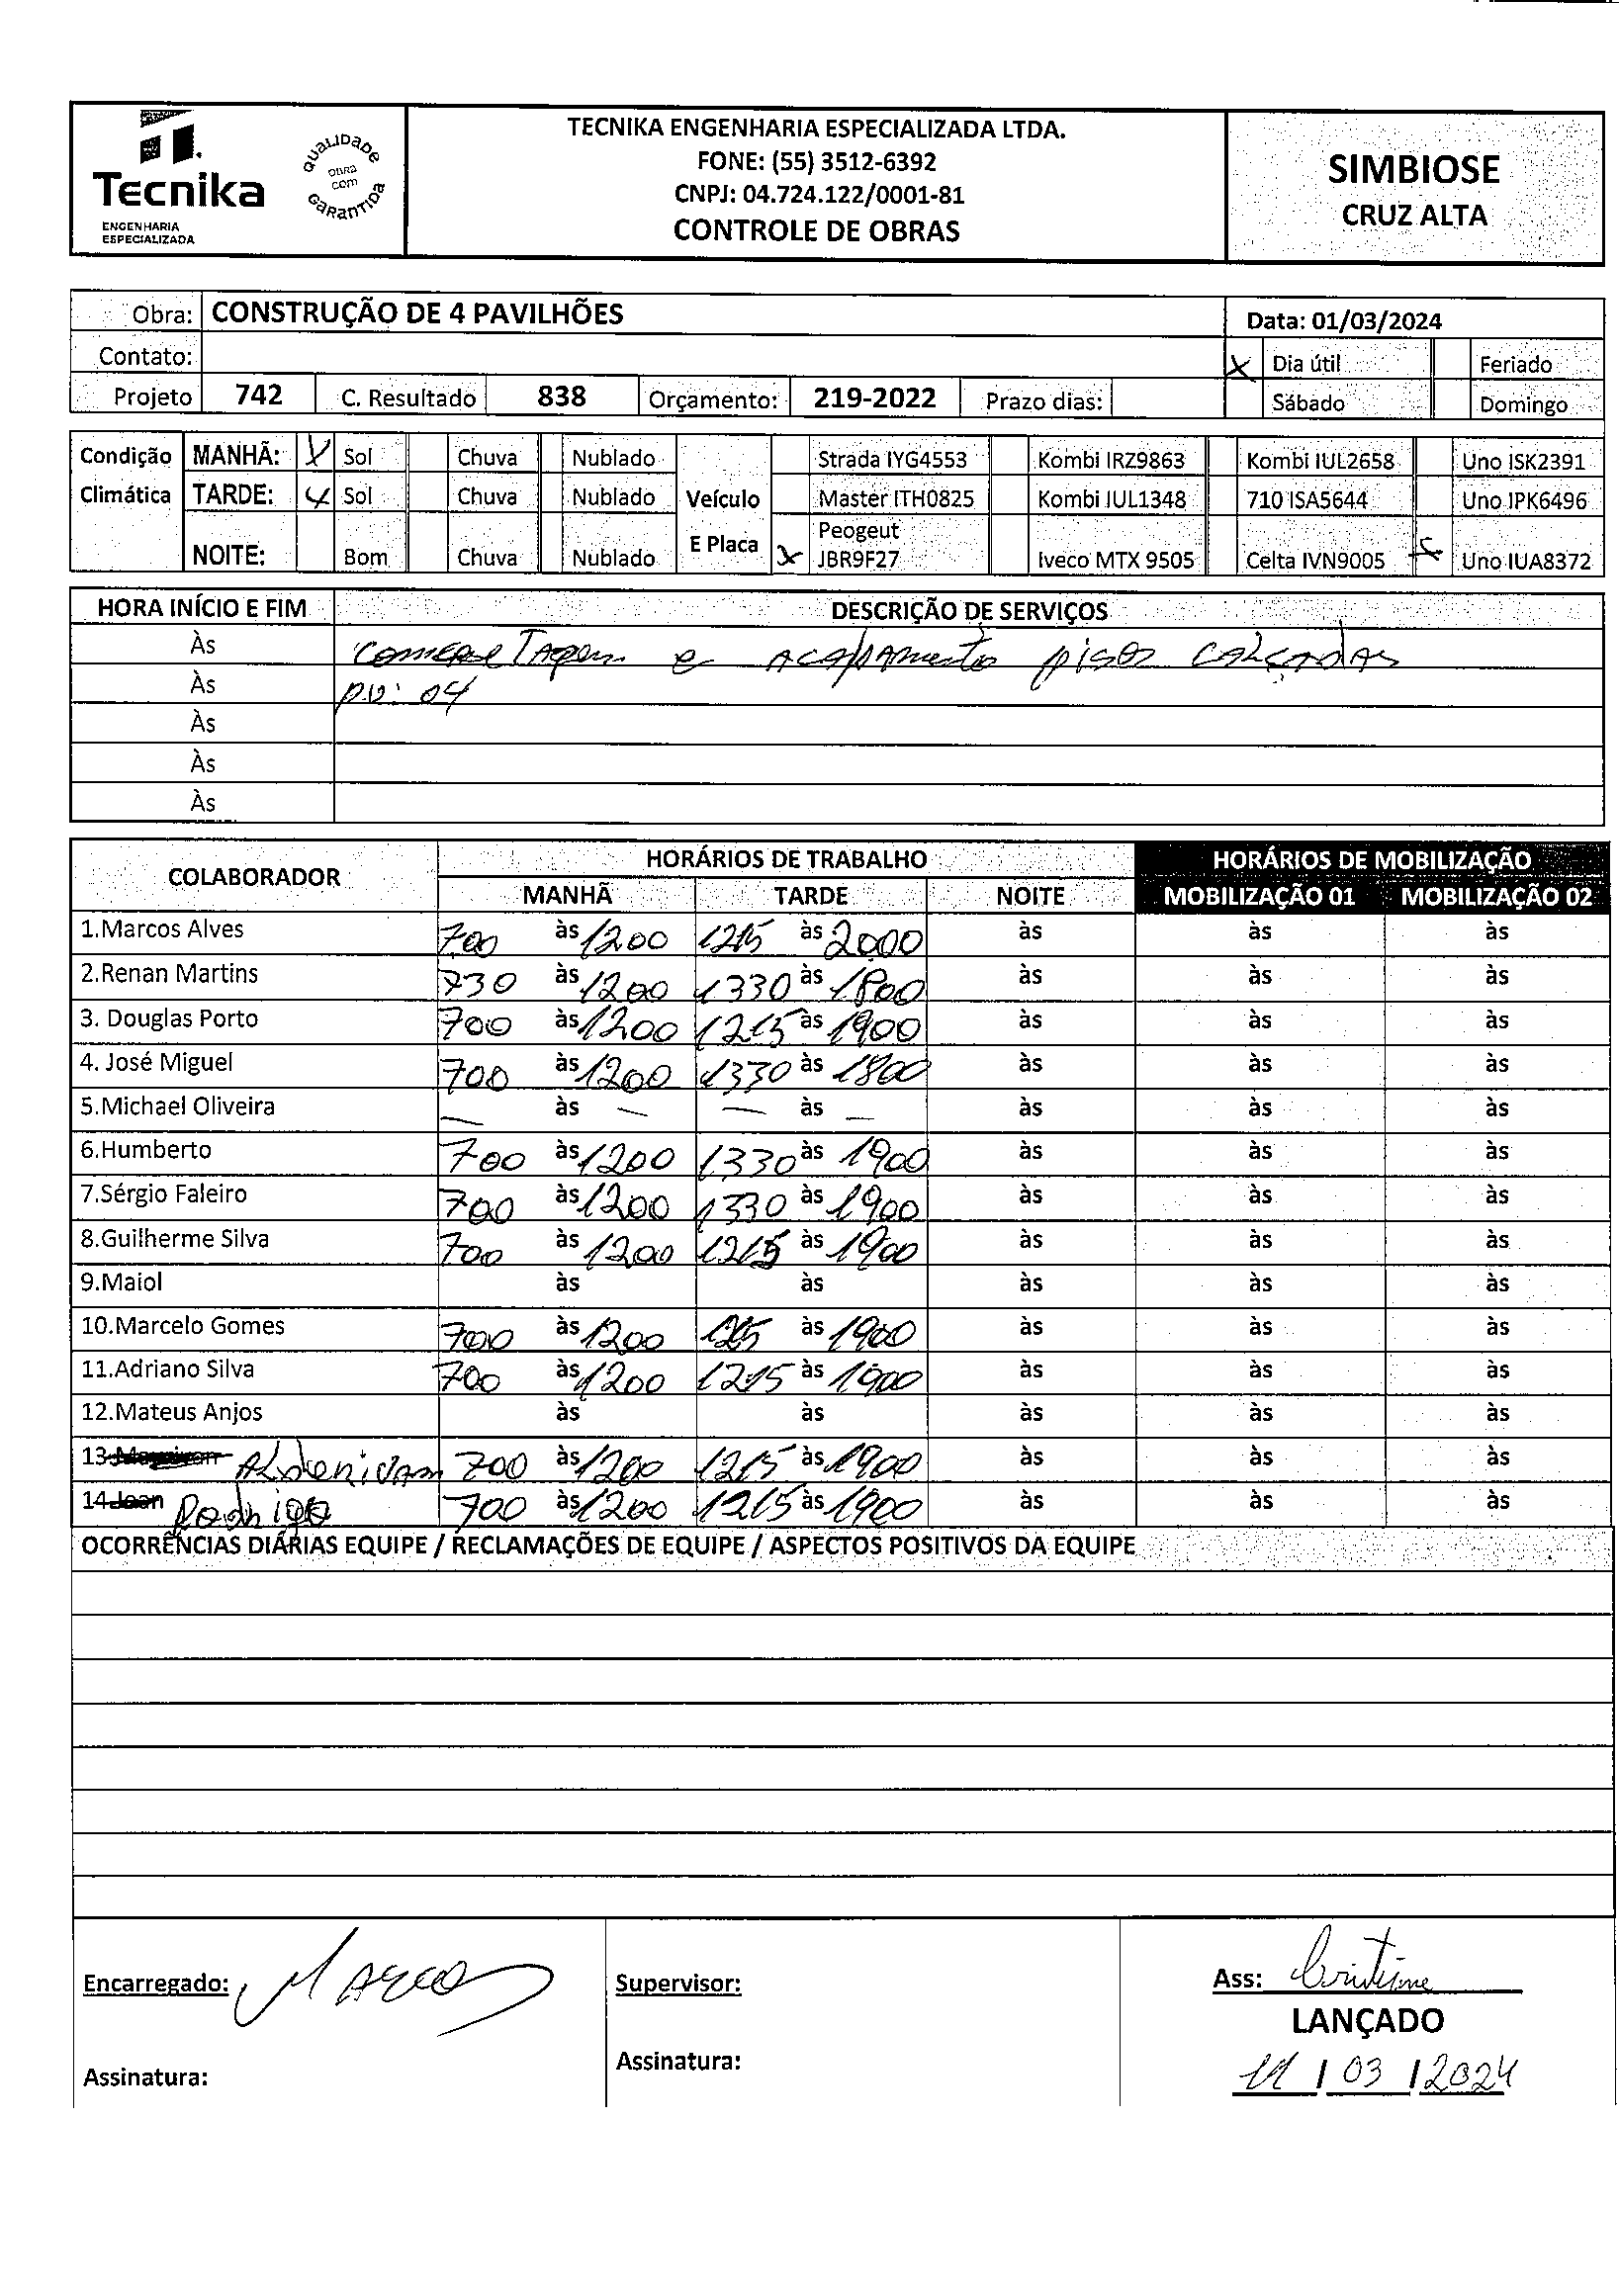 Tecnika
ENGENHARIA
ESPECIALIZADA
QUALIDADE
OBRA
COM
GARANTIDA
TECNIKA ENGENHARIA ESPECIALIZADA LTDA.
FONE: (55) 3512-6392
CNPJ: 04.724.122/0001-81
CONTROLE DE OBRAS
SIMBIOSE
CRUZ ALTA
Obra: CONSTRUÇÃO DE 4 PAVILHÕES Data: 01/03/2024
Contato: X Dia útil Feriado
Projeto 742 C. Resultado 838 Orçamento: 219-2022 Prazo dias: Sábado Domingo
Condição MANHÃ: X Sol Chuva Nublado Strada IYG4553 Kombi IRZ9863 Kombi IUL2658 Uno ISK2391
Climática TARDE: X Sol Chuva Nublado Veículo Master ITH0825 Kombi IUL1348 710 ISA5644 Uno IPK6496
NOITE: Bom Chuva Nublado E Placa X Peogeut JBR9F27 Iveco MTX 9505 Celta IVN9005 X Uno IUA8372
HORA INÍCIO E FIM DESCRIÇÃO DE SERVIÇOS
Às e pisos calçadas
Às PV: 04
Às
Às
Às
COLABORADOR HORÁRIOS DE TRABALHO HORÁRIOS DE MOBILIZAÇÃO
MANHÃ TARDE NOITE MOBILIZAÇÃO 01 MOBILIZAÇÃO 02
1.Marcos Alves 700 às 1200 1215 às 2000 às às às
2.Renan Martins 730 às 1200 1330 às 1800 às às às
3. Douglas Porto 700 às 1200 1215 às 1900 às às às
4. José Miguel 700 às 1200 1330 às 1800 às às às
5.Michael Oliveira — às — — às — às às às
6.Humberto 700 às 1200 1330 às 1900 às às às
7.Sérgio Faleiro 700 às 1200 1330 às 1900 às às às
8.Guilherme Silva 700 às 1200 1215 às 1900 às às às
9.Maiol às às às às às
10.Marcelo Gomes 700 às 1200 1215 às 1900 às às às
11.Adriano Silva 700 às 1200 1215 às 1900 às às às
12.Mateus Anjos às às às às às
13 700 às 1200 1215 às 1900 às às às
14 Jean Rodrigo 700 às 1200 1215 às 1900 às às às
OCORRÊNCIAS DIÁRIAS EQUIPE / RECLAMAÇÕES DE EQUIPE / ASPECTOS POSITIVOS DA EQUIPE
Encarregado: Marcos Supervisor: Ass: Cristiane
LANÇADO
Assinatura: Assinatura: 11 / 03 / 2024